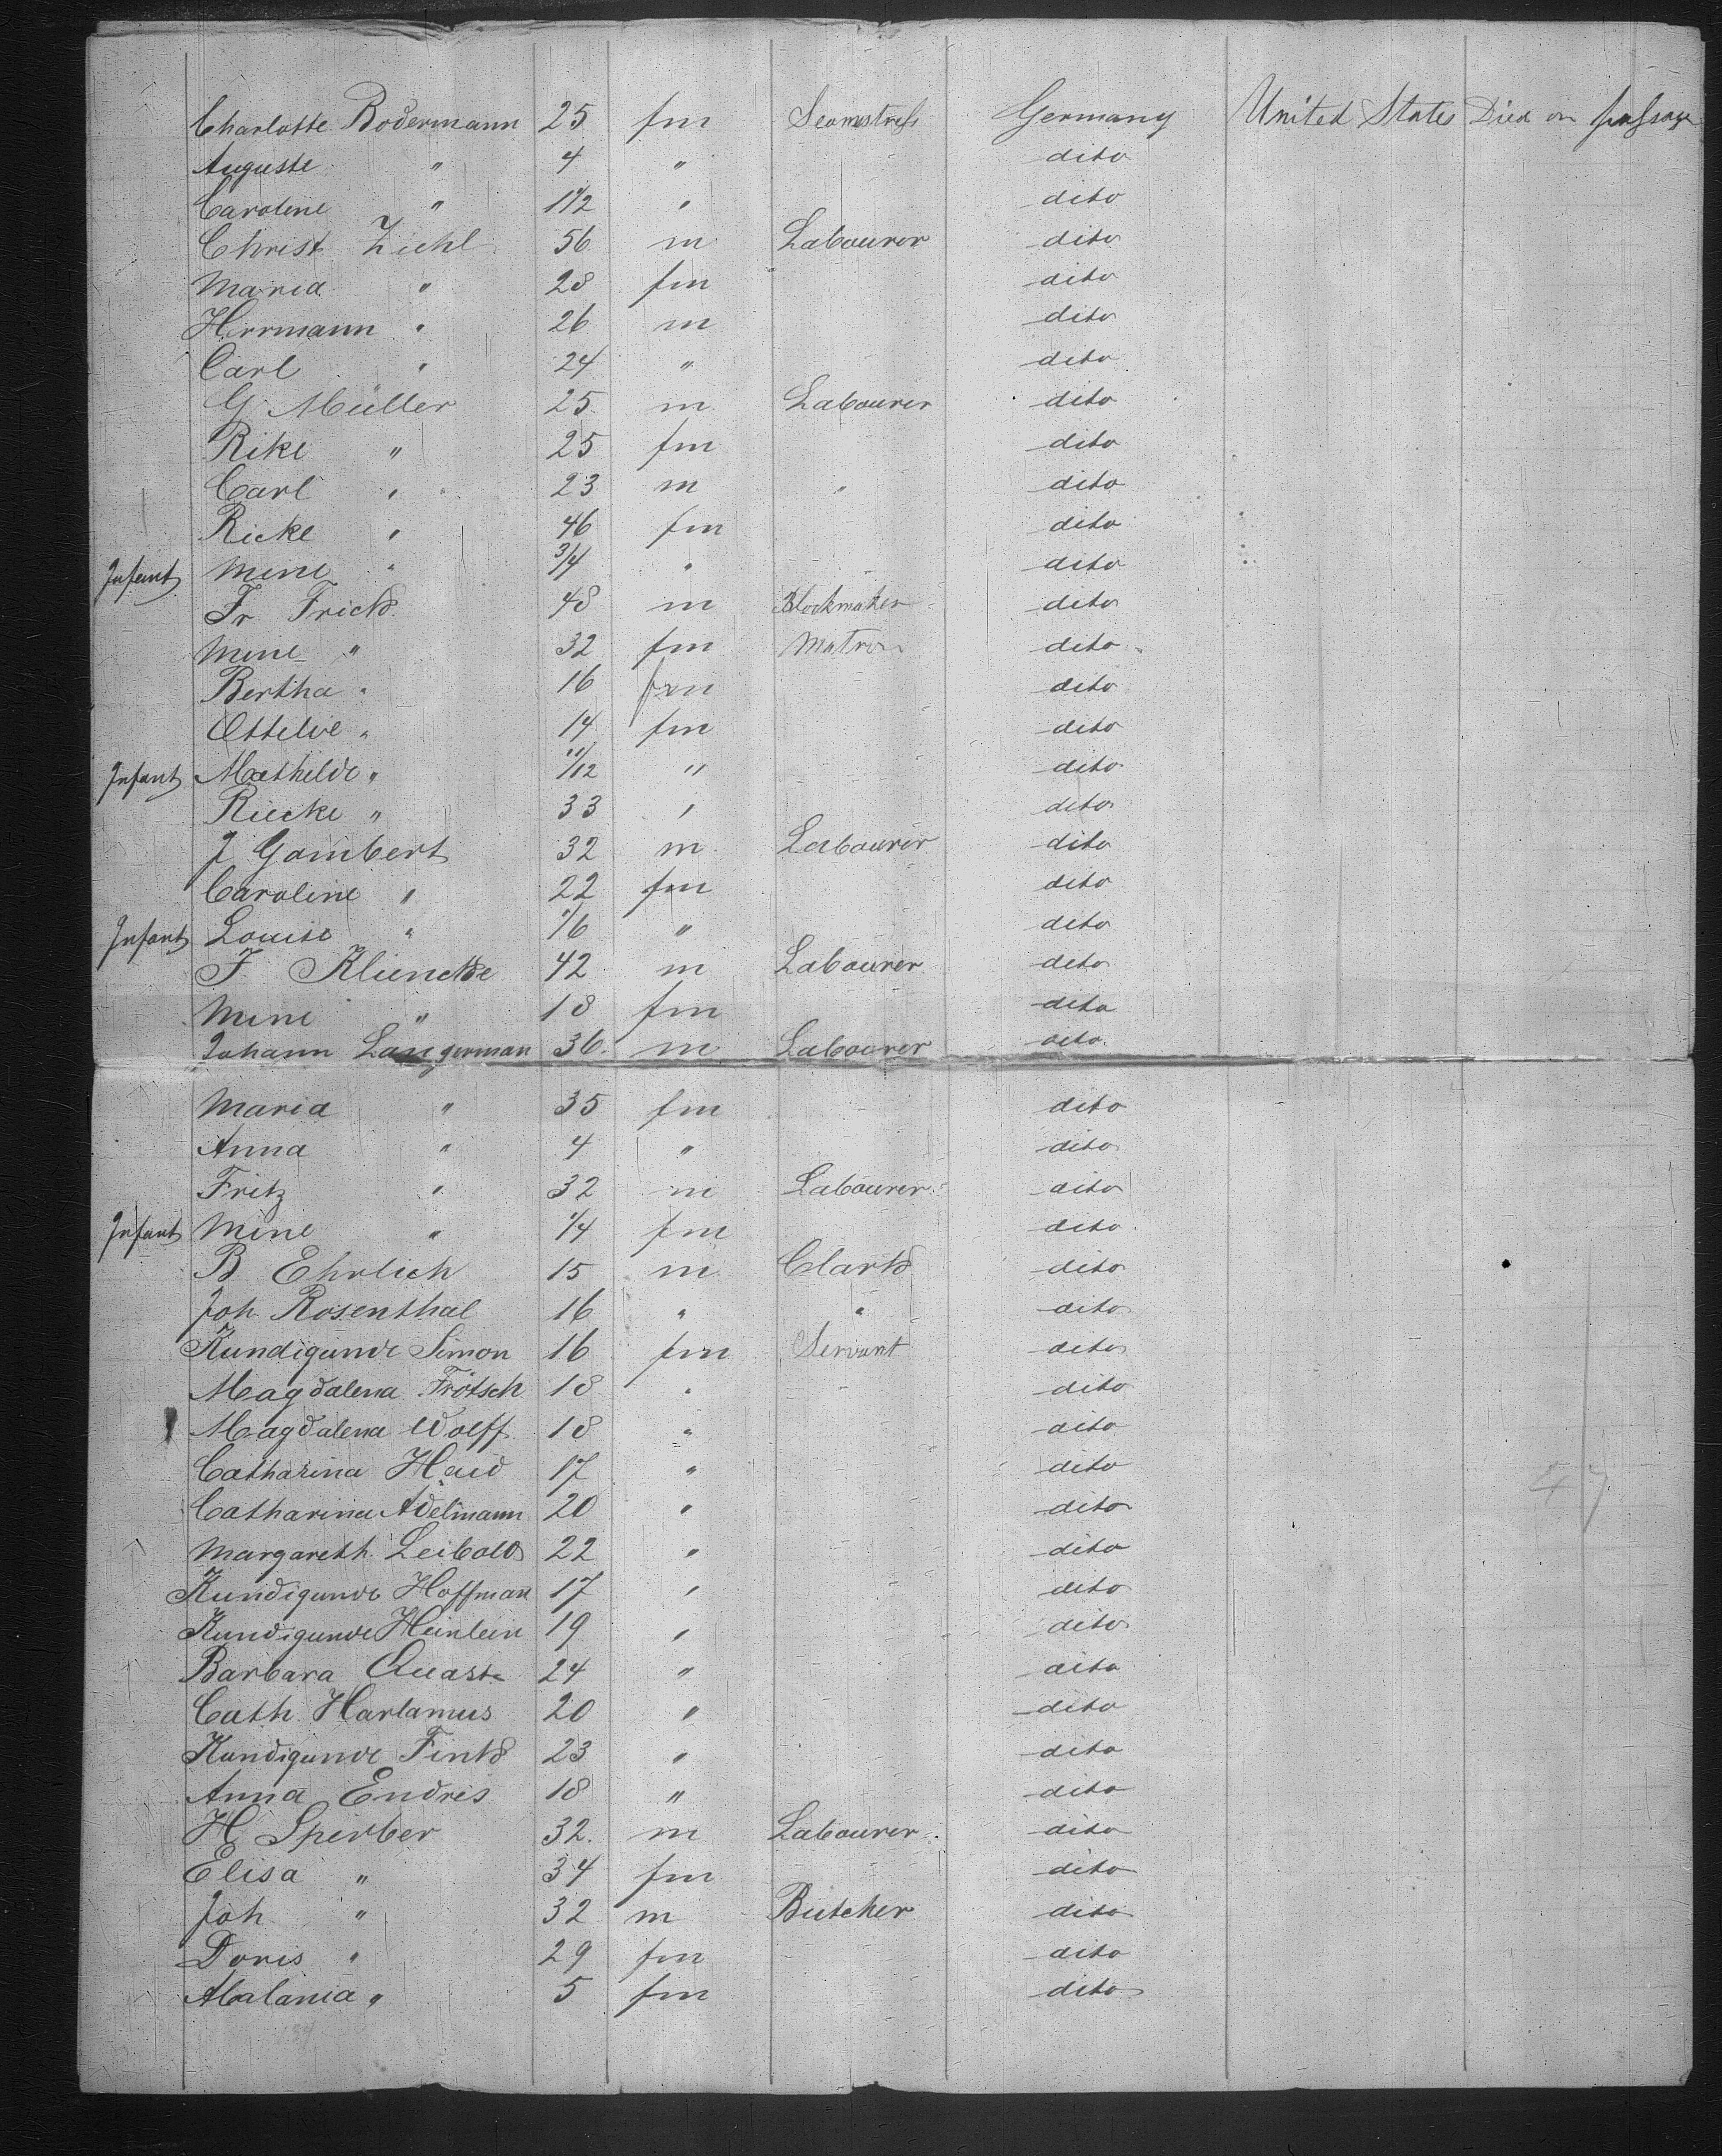 Charlotte Bodermann 25 fm Seamstress Germany United States Died on passage
Auguste " 4 " dito
Caroline " 1 1/2 " dito
Christ Ziehl 56 m Labourer dito
Maria " 28 fm dito
Herrmann " 26 m dito
Carl " 24 " dito
G Müller 25 m Labourer dito
Rike " 25 fm dito
Carl " 23 m " dito
Ricke " 46 fm dito
Infant Mine " 3/4 " dito
Fr Frick 48 m Blockmaker dito
Mine " 32 fm Matron dito
Bertha " 16 fm dito
Ottelie " 14 fm dito
Infant Mathilde " 11/12 " dito
Riecke " 33 " dito
J Gambert 32 m Labourer dito
Caroline " 22 fm dito
Infant Louise " 1/6 " dito
J Kluncke 42 m Labourer dito
Mine " 18 fm dito
Johann Langerman 36 m Labourer dito
Maria " 35 fm dito
Anna " 4 " dito
Fritz " 32 m Labourer dito
Infant Mine " 1/4 fm dito
B Ehrlich 15 m Clark dito
Joh Rosenthal 16 " " dito
Kundigunde Simon 16 fm Servant dito
Magdalena Frötsch 18 " dito
Magdalena Wolff 18 " dito
Catharina Haid 17 " dito
Catharina Adelmann 20 " dito
Margareth Leibold 22 " dito
Kundigunde Hoffman 17 " dito
Kundigunde Heinlein 19 " dito
Barbara Quast 24 " dito
Cath Harlamus 20 " dito
Kundigunde Fink 23 " dito
Anna Endres 18 " dito
H Sperber 32 m Labourer dito
Elisa " 34 fm dito
Joh " 32 m Butcher dito
Doris " 29 fm dito
Malania " 5 fm dito